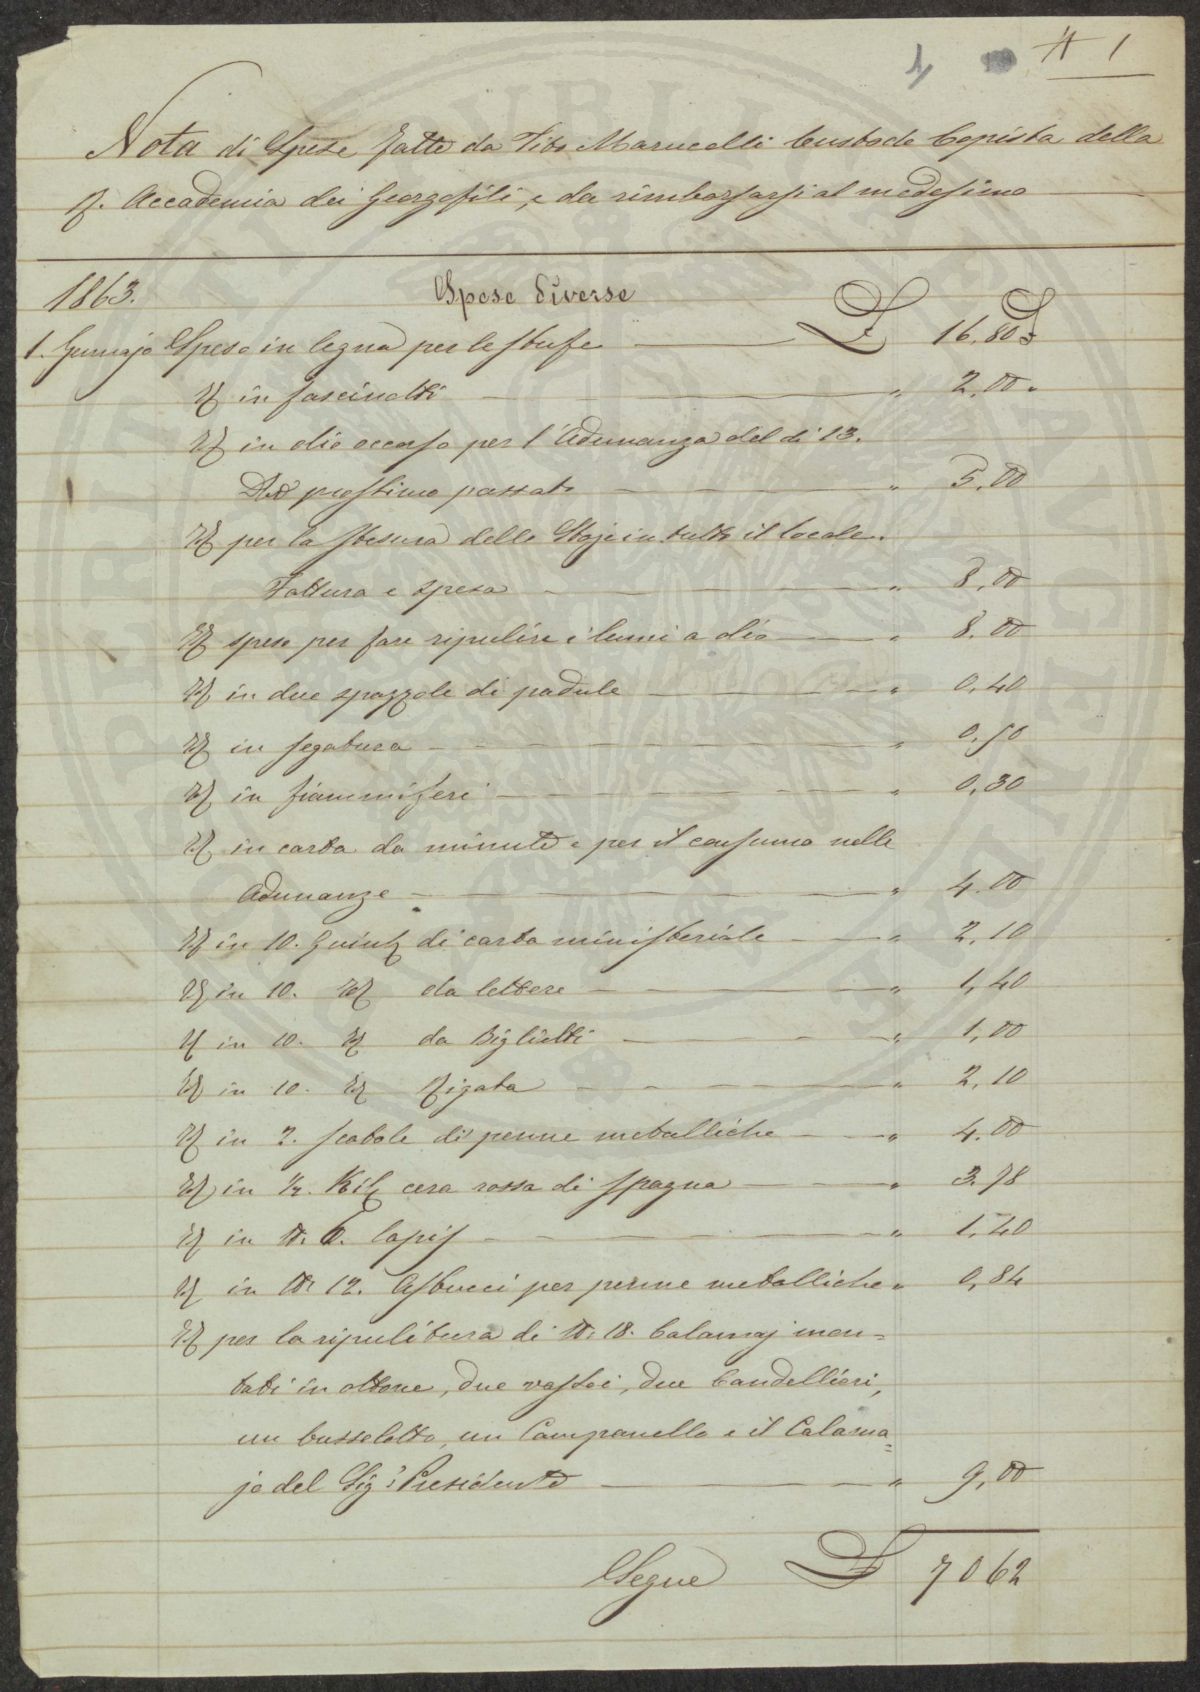 1
N 1
Nota di Spese fatte da Tito Marucelli Custode Copista della
R. Accademia dei Georgofili, e da rimborsarsi al medesimo
1863. Spese diverse
1. Gennajo Spese in legna per le stufe £ 16,80
Id in fascinotti " 2,00
Id in olio occorso per l'Adunanza del dì 13.
prossimo passato " 5,00
Id per la stesura delle Stoje in tutto il locale.
Fattura e spesa " 8,00
Id spesa per fare ripulire i lumi a olio " 8.00
Id in due spazzole di padule " 0,40
Id in segatura " 0,50
Id in fiammiferi " 0,30
Id in carta da minute e per il consumo nelle
Adunanze " 4.00
Id in 10. Quint di carta ministeriale " 2,10
Id in 10. Id da lettere " 1,40
Id in 10. Id da Biglietti " 1,00
Id in 10. Id Rigata " 2,10
Id in 2. scatole di penne metalliche " 4.00
Id in ½. Kil cera rossa di Spagna " 3.78
Id in N. 6. lapis " 1,40
Id in N. 12. Astucci per penne metalliche " 0,84
Id per la ripulitura di N. 18. Calamaj mon=
tati in ottone, due vassoi, due Candellieri,
un bussolotto, un Campanello e il Calama=
jo del Sig.r Presidente " 9,00
Segue £ 70 62